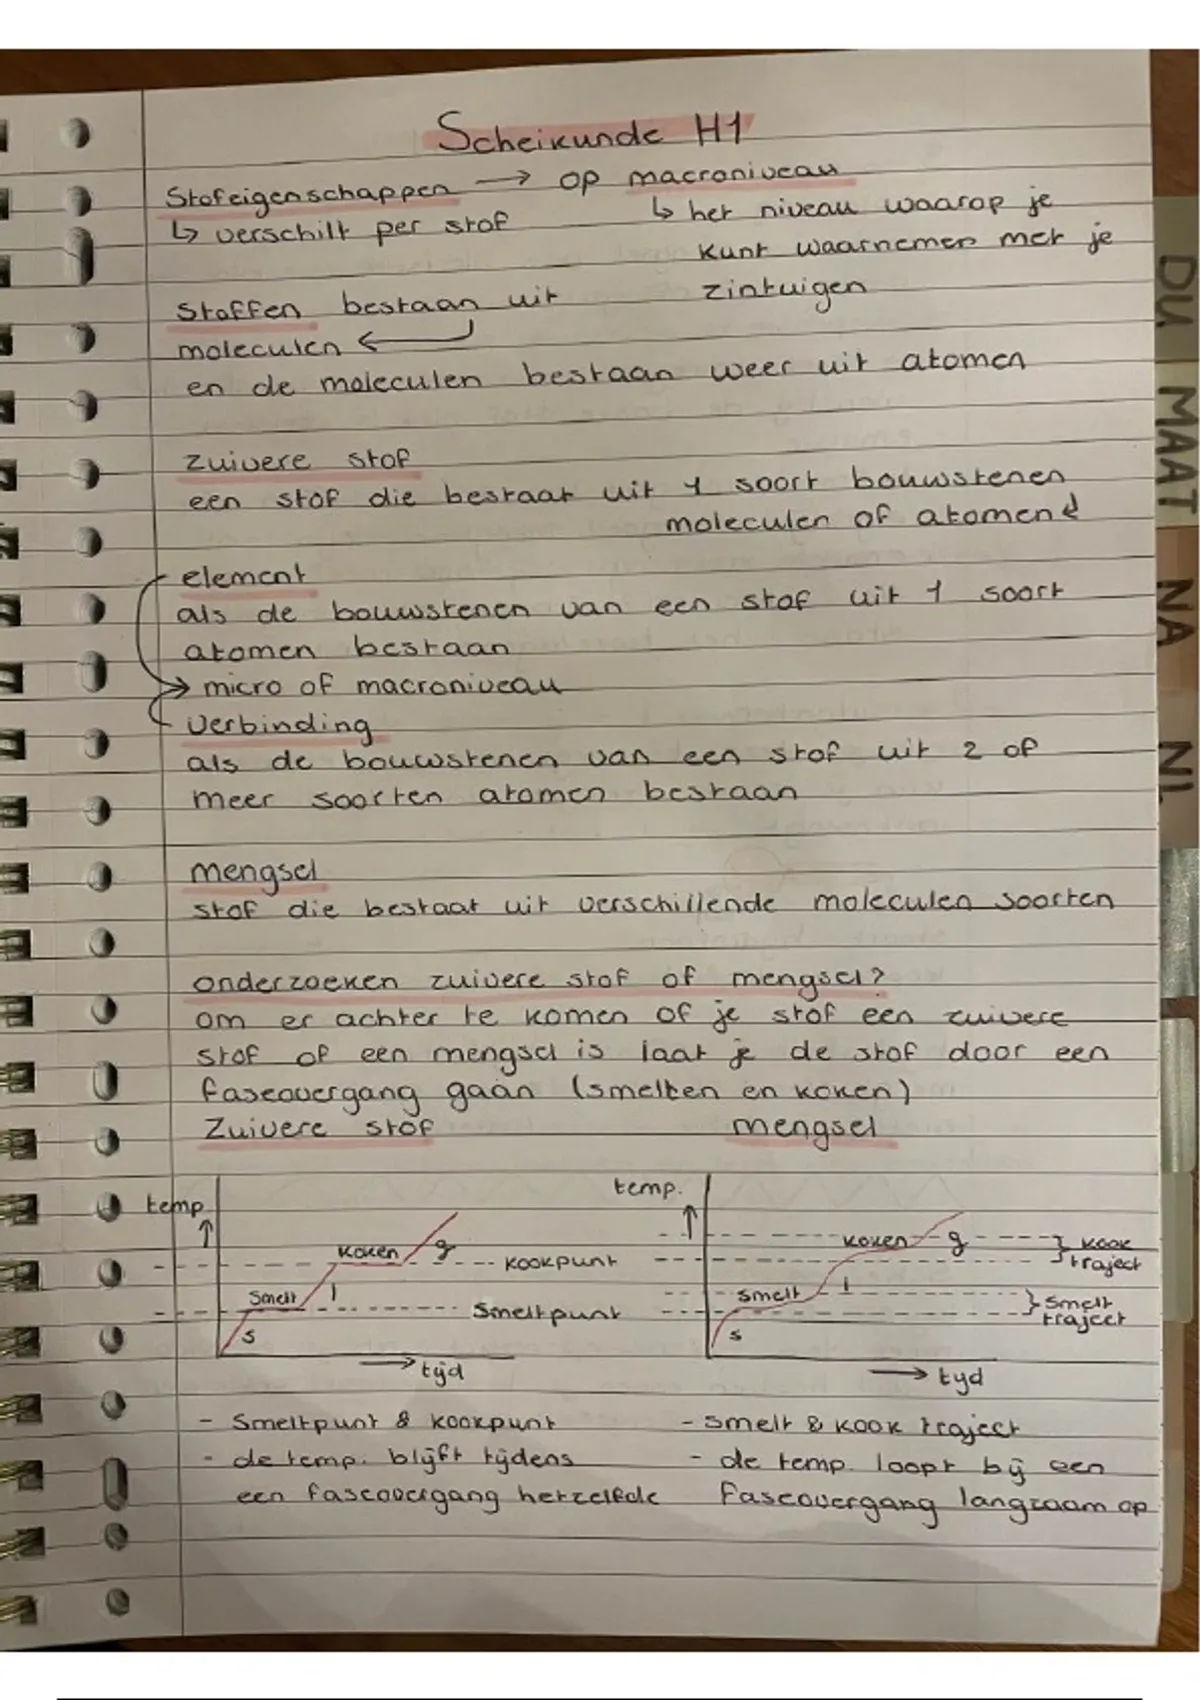 Scheikunde H1
Stofeigenschappen → op macroniveau
↳ verschilt per stof
↳ het niveau waarop je
kunt waarnemen met je
zintuigen
Stoffen bestaan uit
moleculen ←
en de moleculen bestaan weer uit atomen
zuivere stof
een stof die bestaat uit 1 soort bouwstenen
moleculen of atomen
element
als de bouwstenen van een stof uit 1 soort
atomen bestaan
→ micro of macroniveau
verbinding
als de bouwstenen van een stof uit 2 of
meer soorten atomen bestaan
mengsel
stof die bestaat uit verschillende moleculen soorten
onderzoeken zuivere stof of mengsel?
om er achter te komen of je stof een zuivere
stof of een mengsel is laat je de stof door een
faseovergang gaan (smelten en koken)
Zuivere stof
mengsel
temp.
↑
koken
g
kookpunt
smelt
l
smeltpunt
s
→ tijd
temp.
↑
koken
g
kook
traject
smelt
l
smelt
traject
s
→ tijd
- Smeltpunt & kookpunt
- de temp. blijft tijdens
een faseovergang hetzelfde
- smelt & kook traject
- de temp. loopt bij een
faseovergang langzaam op
DU.
MAAT
NA
NL